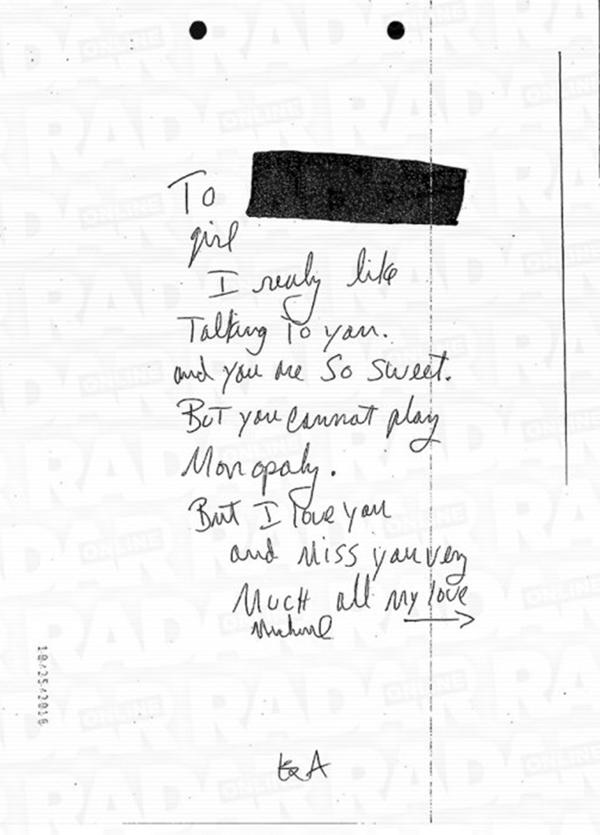 To
girl
I really like
Talking To you.
and you are So sweet.
BuT you cannot play
Monopoly.
But I love you
and Miss you very
Much all my love
Michael
10/25/2016
RADAR ONLINE